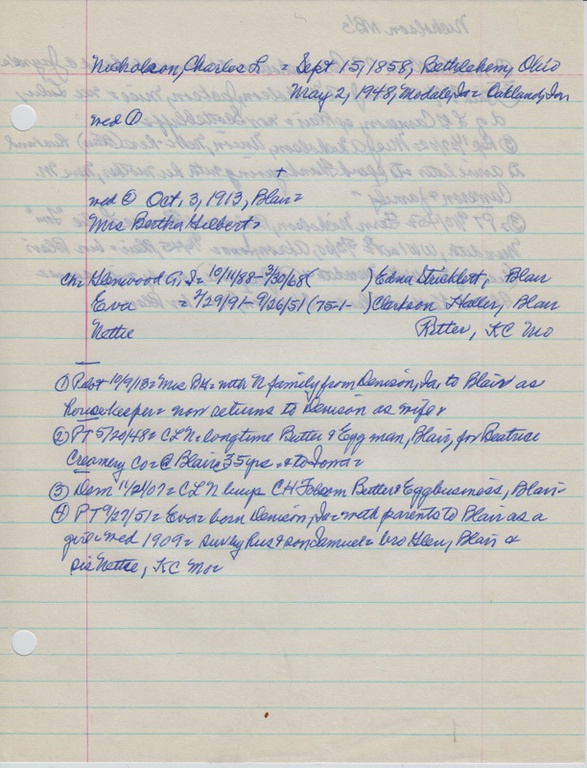 Nicholson, Charles L = Sept 15, 1858, Bethlehem, Ohio
May 2, 1948, Modale, Ia = Oakland, Ia
wed ①
+
wed ② Oct, 3, 1913, Blair =
Mrs Bertha Hilbert =
Ch: Glenwood G. = 10/11/88 - 3/30/68 ( ) Edna Stricklett, Blair
Eva = 2/29/91 - 9/26/51 (75-1- ) Clarkson Haller, Blair
Nettie Ritter, KC Mo
① 10/9/13 = Mrs BH = with N family from Denison, Ia, to Blair as
housekeeper = now returns to Denison as wife
② PT 5/20/48 = CLN = longtime Butter & Egg man, Blair, for Beatrice
Creamery Co = @ Blair 35 yrs = to Iowa =
③ Dem 11/21/07 = CLN buys CH Folsom Butter & Egg business, Blair =
④ PT 9/27/51 = Eva = born Denison, Ia = with parents to Blair as a
girl = wed 1909 = surv by hus & son Samuel = bro Glen, Blair &
sis Nettie, KC Mo =